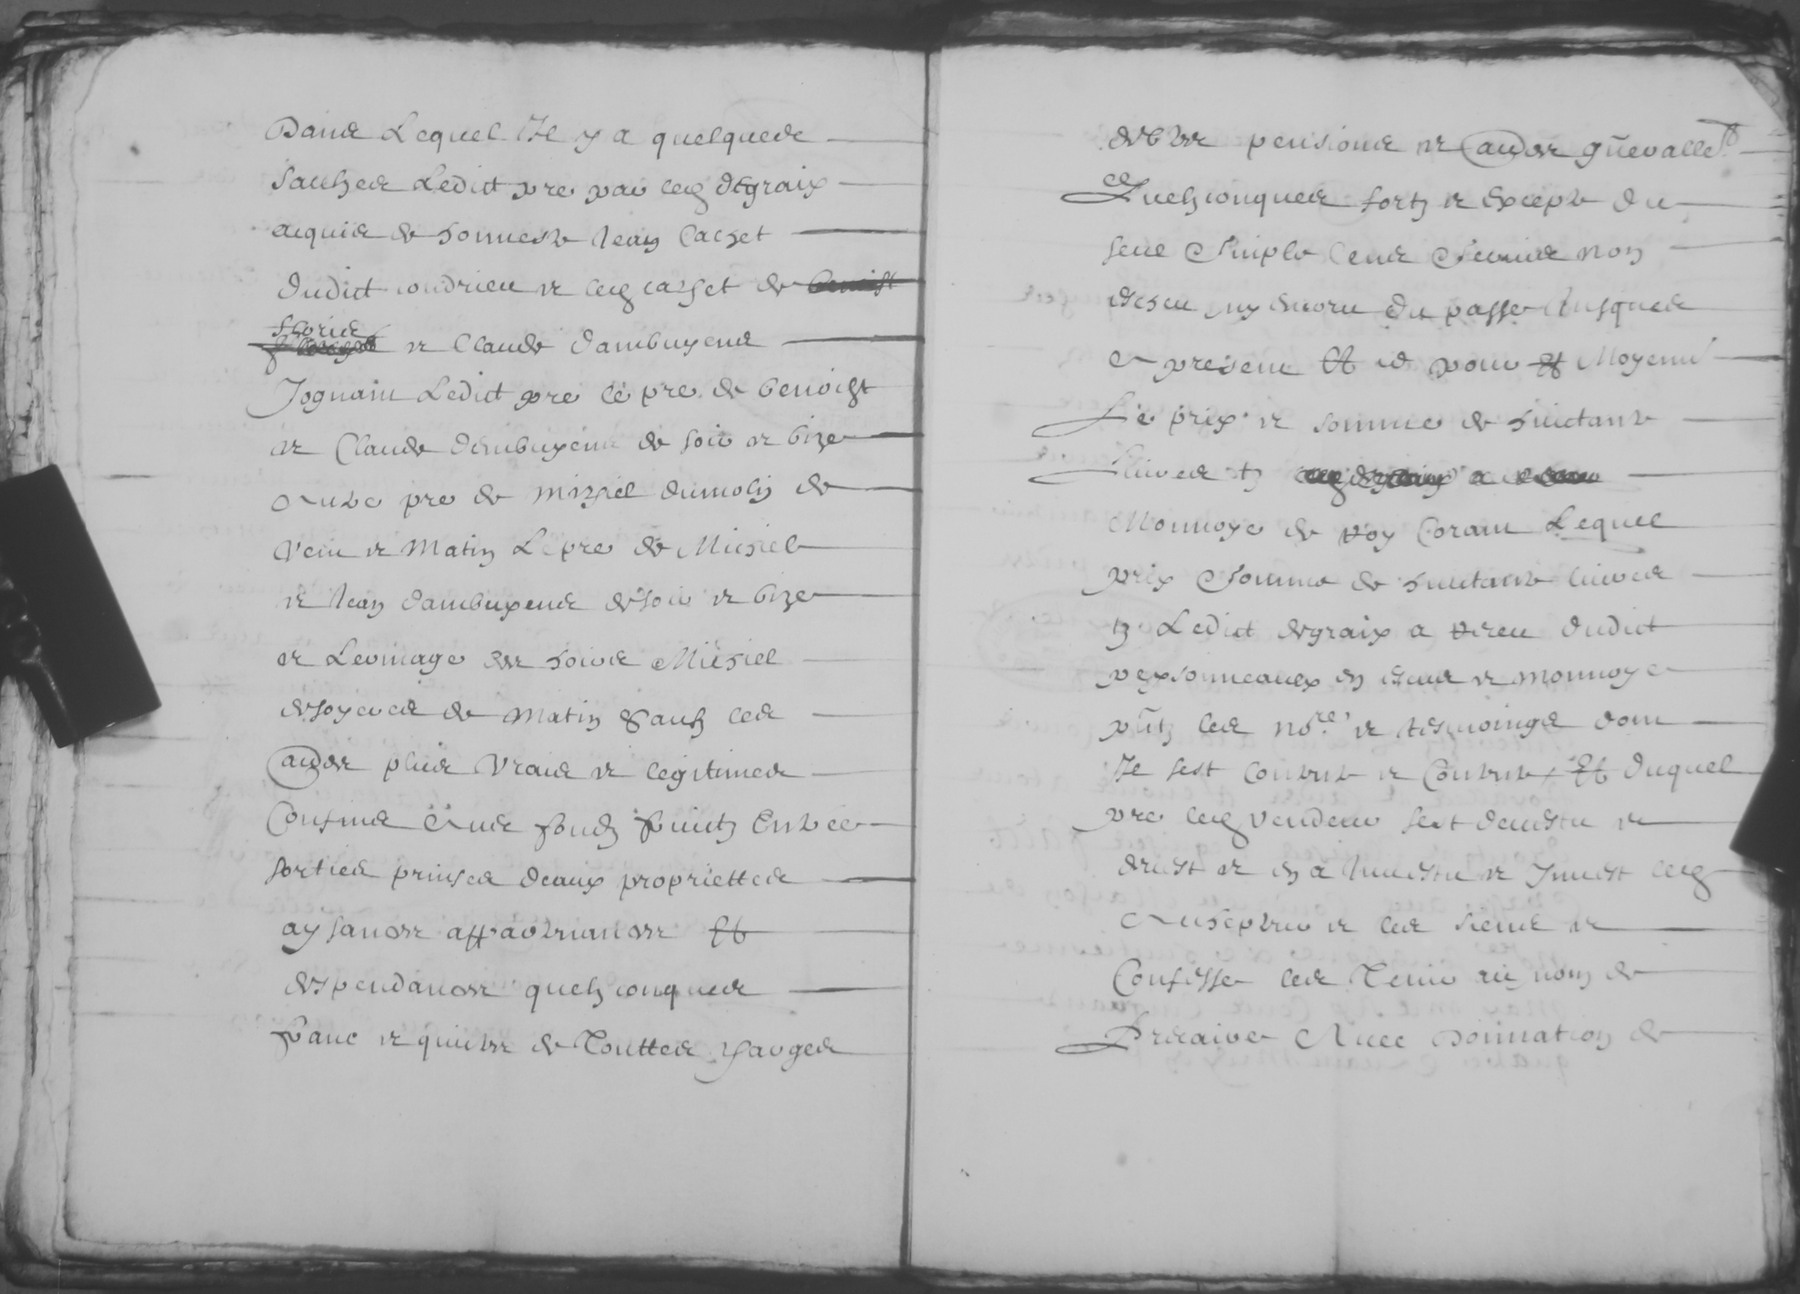 Dans Lequel Il y a quelques
saulzes Ledict pre par led degraix
acquis de honneste Jean Cachet
dudict condrieu et led cachet de benoist
floris et Claude dambuyens
Joignant Ledict pre le pre de benoist
et Claude dambuyens de soir et bize
Autre pre de Michel dumolin de
vent et Matin Le pre de Michel
et Jean dambuyens de soir et bize
et Levinage des hoirs Michel
de Matin Sauf ces
autres plus Vrais et legitimes
Confins Avec fonds fruictz Entrees
sorties prinses deaux propriettes
aysances appartenances Et
despendances quelzconques
franc et quitte de Touttes charges
debtes pensions et autres gnералles
Quelzconques fortz et Excepte du
seul Simple Cens Servis non
escheu ny encoru du passe Jusques
A present Et ce pour Et Moyenn
Le prix et somme de huictante
Livres tz
Monnoye de Roy Corant Lequel
prix Somme de huictante livres
tz Ledict degraix a Receu dudict
en escus et monnoye
pntz les nore et tesmoings dont
Il sest Contente et Contente Et duquel
pre led vendeur sest demis et
devest et en a Investu et Invest led
Achepteur et les siens et
Confesse les Tenir au nom de
Precaire Avec Donnation de